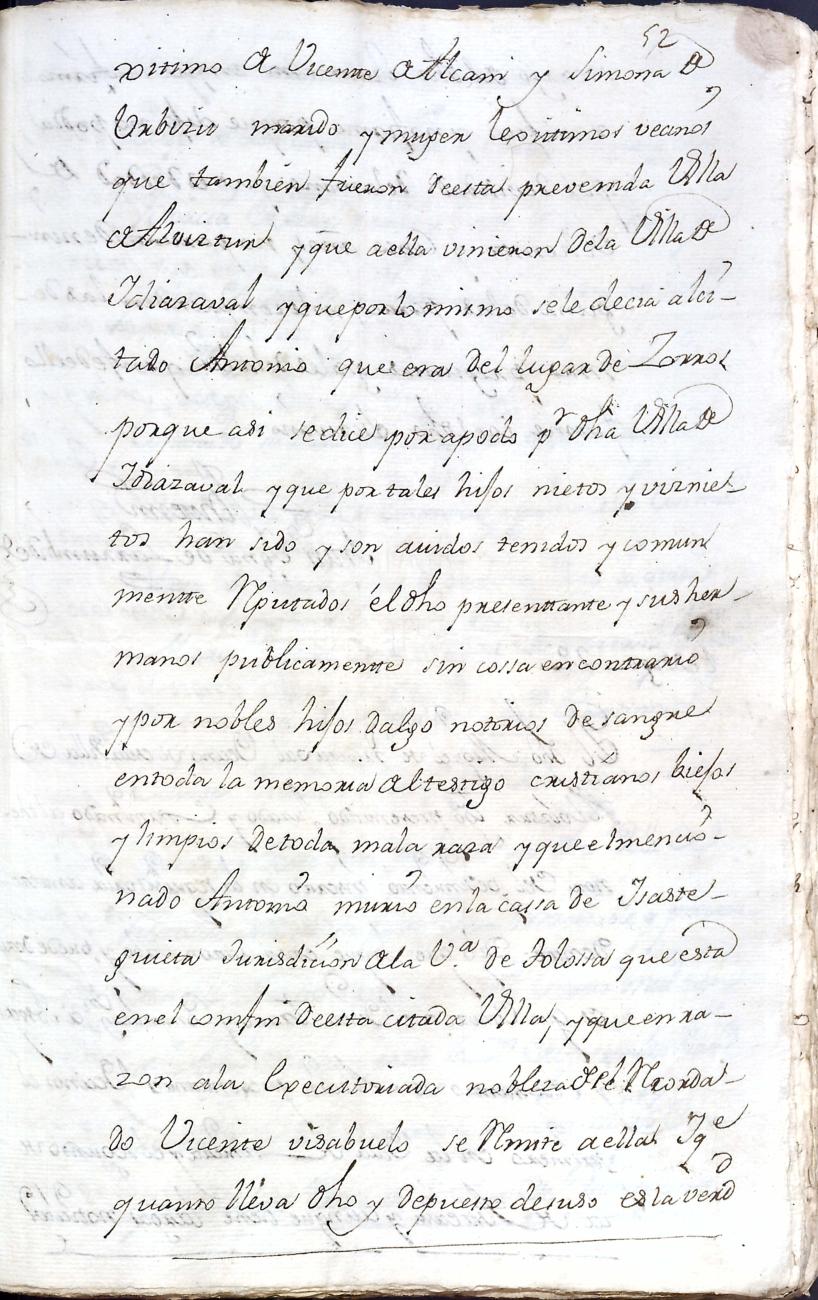 52
xitimo de Vicente de Alcain y Simona de
Urbizu marido y muger lexittimos vecinos
que tambien fueron deesta prevenida Villa
de Alviztur y que aella vinieron dela Villa de
Idiazaval y queporlo mismo sele decia alci-
tado Antonio que era del lugar de Zorros
porque asi sedice por apodo pr dha Villa de
Idiazaval y que por tales hijos nietos y viznie-
tos han sido y son avidos tenidos y comun
mentte Rputados él dho presenttante y sus her-
manos publicamentte sin cossa en contrario
y por nobles hijos dalgo notorios de sangre
entoda la memoria del testigo cristianos biejos
y limpios de toda mala raza y que el mencio-
nado Antonio murio en la cassa de Isaste-
guieta Jurisdicion dela V.a de Tolossa que esta
en el confin deesta citada Villa, y que en ra-
zon ala Executtoriada nobleza del Rcorda-
do Vicente visabuelo se Rmite aella Y qe
quanto lleva dho y depuesto desuso es la verd